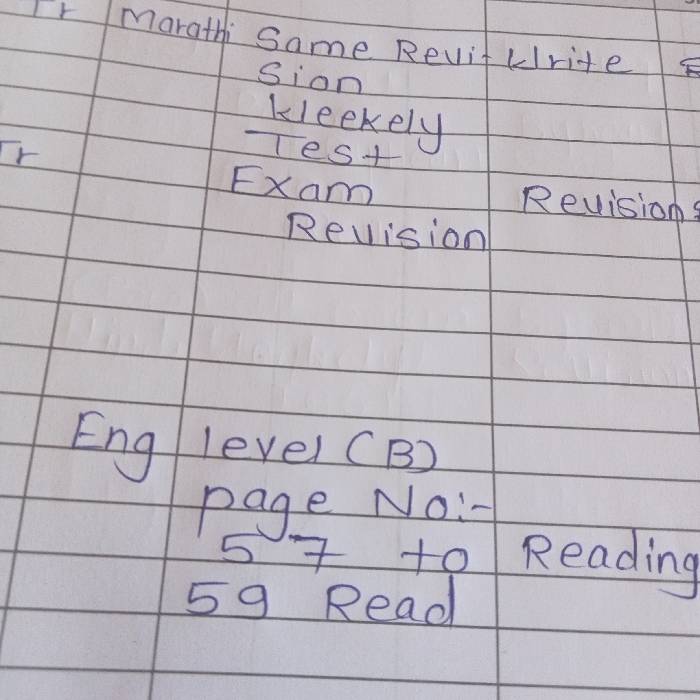 Tr Marathi Same Revi- Write
sion
Weekely
Test
Tr
Exam Revision
Revision
Eng level (B)
page No:-
57 to Reading
59 Read